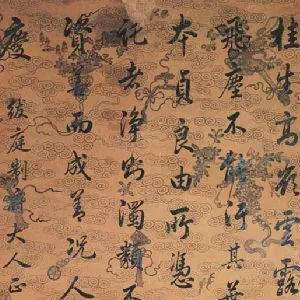 桂生高嶺雲露
飛塵不能汙其葉
本貞良由所憑
託者淨則濁類不
資善而成善況人
慶
紱庭制軍大人正